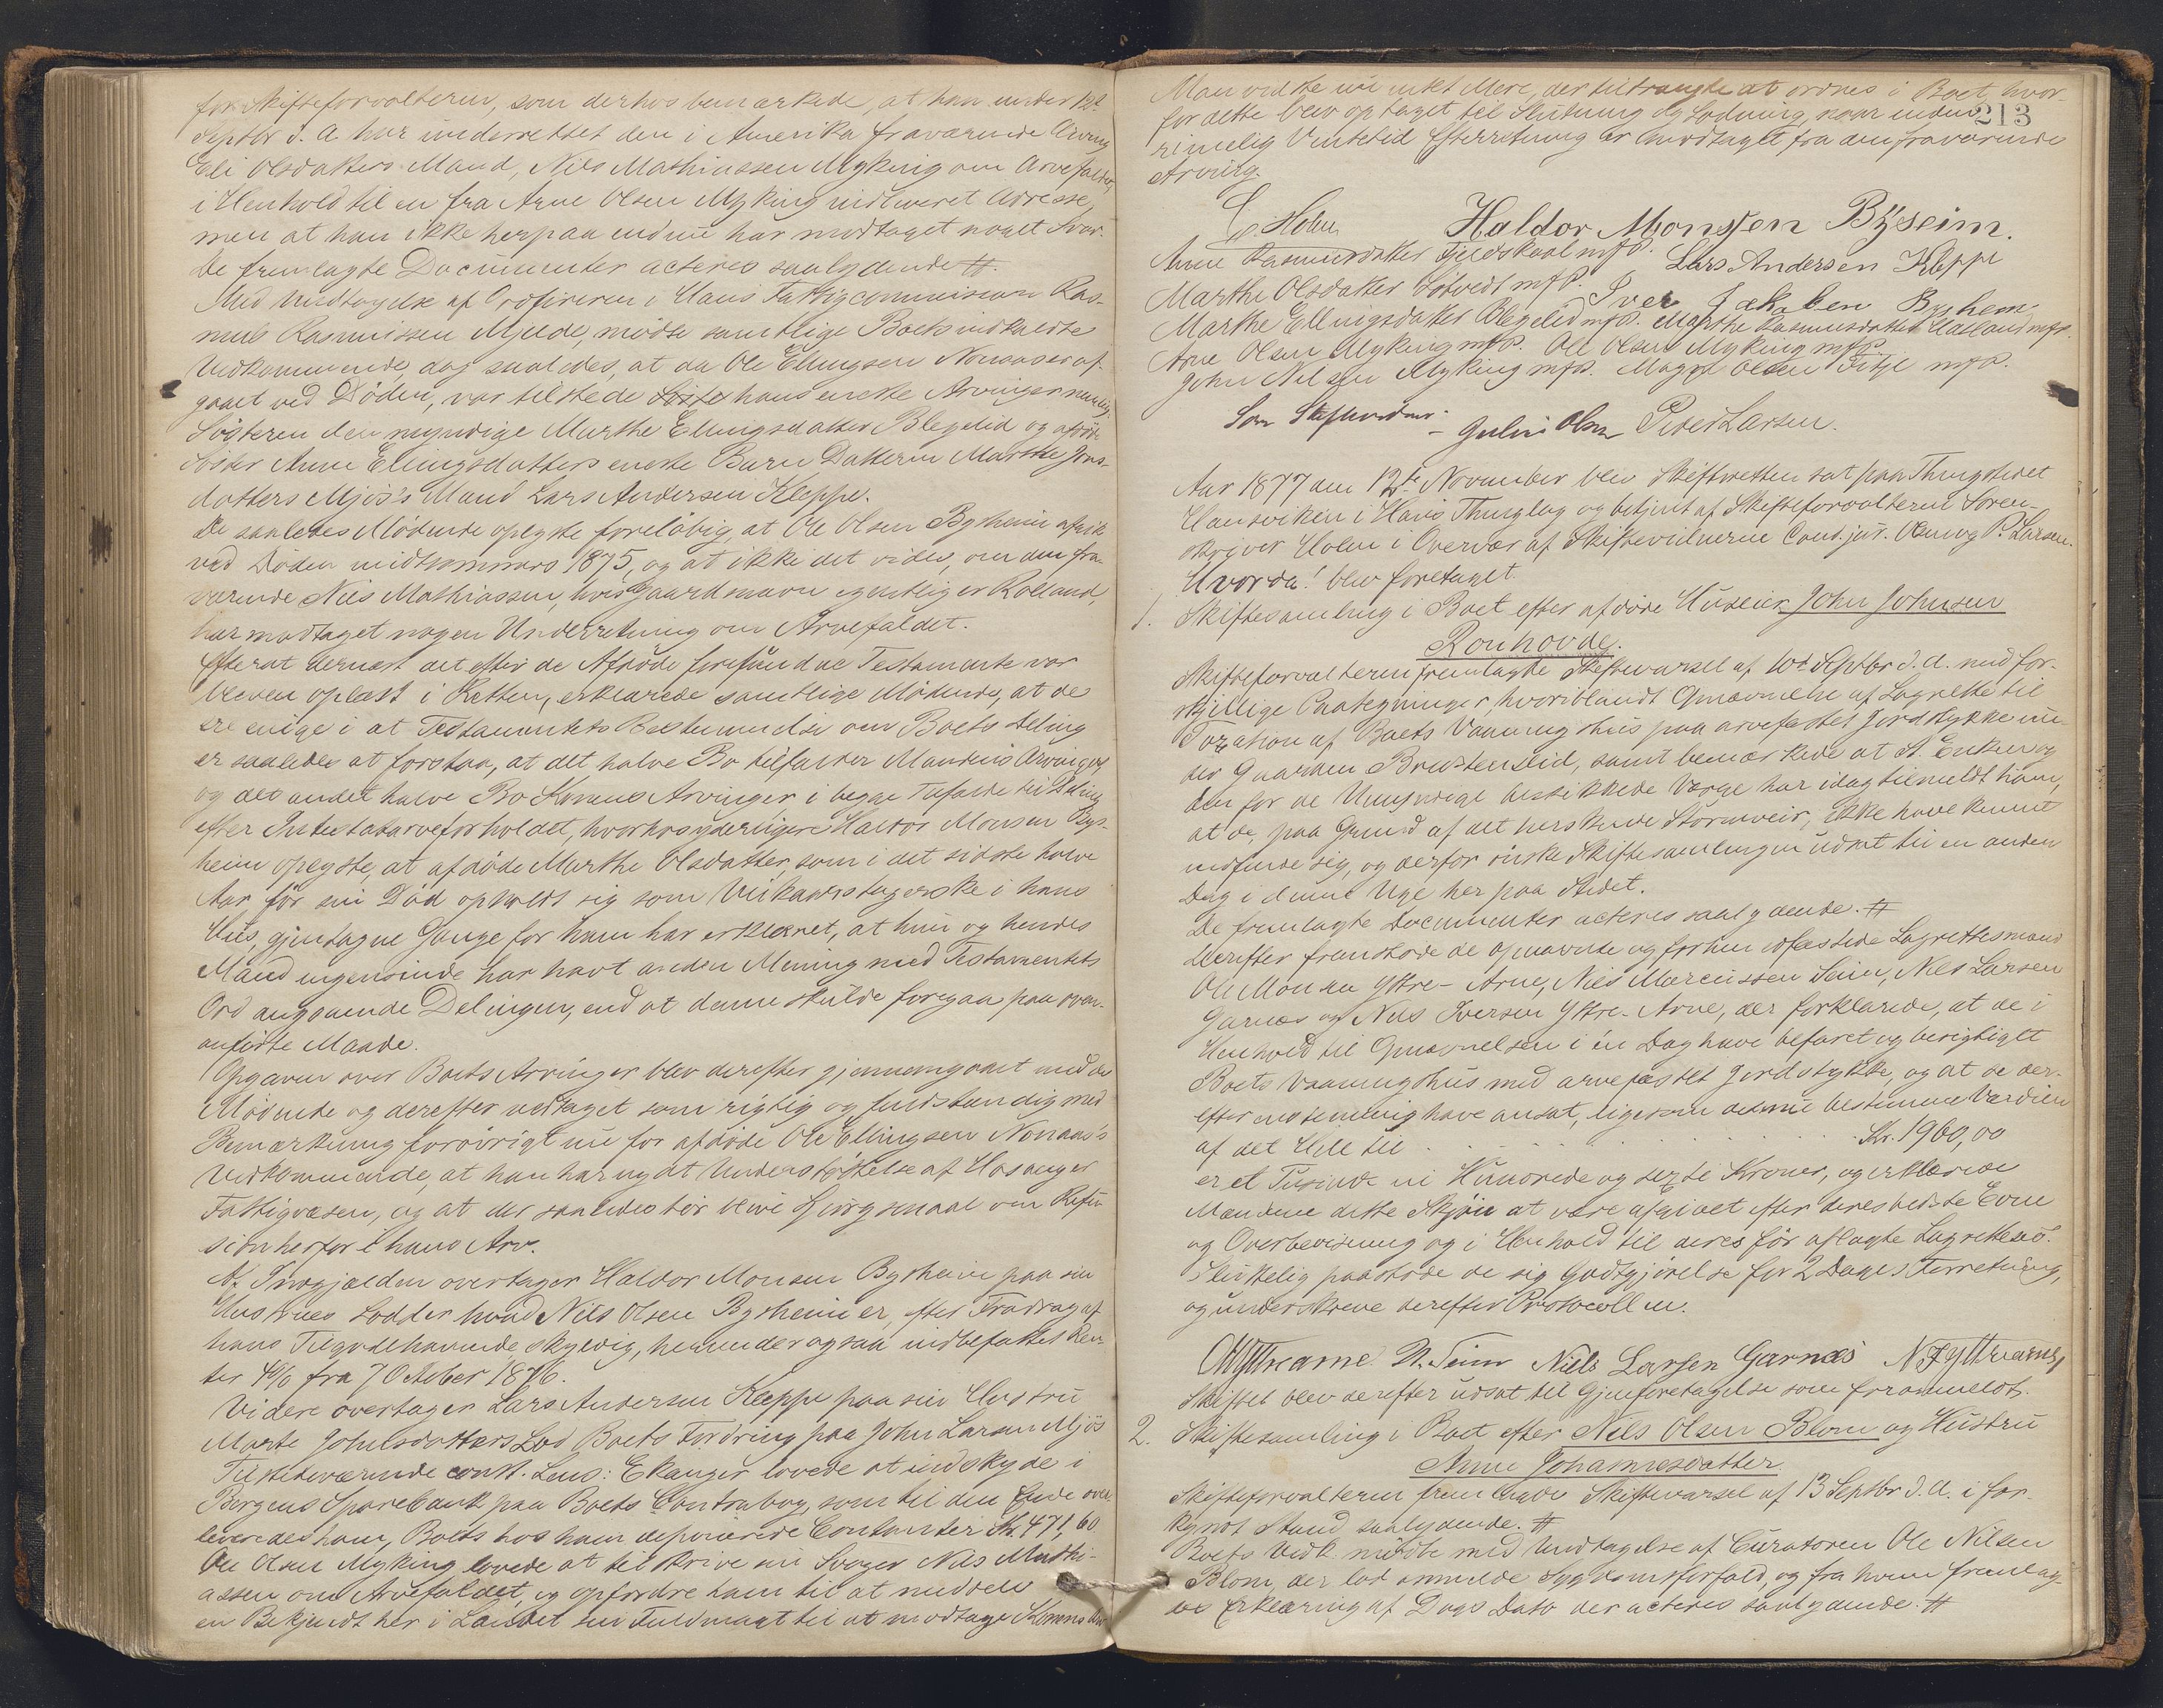 for Skifteforvalteren, som derhos bemærkede, at han under 12t
Septbr d. A har underrettet den i Amerika fraværende Arving
Eli Olsdatters Mand, Nils Mathiassen Myking om Arvefaldet,
i Henhold til en fra Arne Olsen Myking indleveret Adresse,
men at han ikke herpaa endnu har modtaget noget Svar.
De fremlagte Documenter acteres saalydende #.
Med Undtagelse af Ordføreren i Haus Fattigcommission Ras-
mus Rasmussen Mjelde, mødte samtlige Boets indkaldte
Vedkommende, dog saaledes, at da Ole Ellingsen Nonaas er af-
gaaet ved Døden, var tilstede hans eneste Arvinger nemlig
Søsteren den myndige Marthe Ellingsdatter Blegelid og afdøde
Søster Anne Ellingsdatters eneste Barn Datteren Marthe Jons-
datters Mjøs's Mand Lars Andersen Kleppe.
De saaledes Mødende oplyste foreløbig, at Ole Olsen Bysheim afgik
ved Døden midtsommers 1875, og at ikke det vides, om den fra-
værende Nils Mathiassen, hvis Gaardsnavn egentlig er Rolland,
har modtaget nogen Underretning om Arvefaldet.
Efterat dernæst det efter de Afdøde forefundne Testamente var
bleven oplæst i Retten, erklærede samtlige Mødende, at de
ere enige i at Testamentets Bestemmelse om Boets Deling
er saaledes at forstaa, at det halve Bo tilfalder Mandens Arvinger,
og det andet halve Bo Konens Arvinger, i begge Tilfælde til Deling
efter Intestatarveforholdet, hvorhos yderligere Haldor Monsen Bys-
heim oplyste, at afdøde Marthe Olsdatter, som i det sidste halve
Aar før sin Død opholdt sig som Vilkaarstagerske i hans
Hus, gjentagne Gange for ham har erklæret, at hun og hendes
Mand ingensinde har havt anden Mening med Testamentets
Ord angaaende Delingen, end at denne skulde foregaa paa oven-
anførte Maade.
Opgaven over Boets Arvinger blev derefter gjennemgaaet med de
Mødende og derefter vedtaget som rigtig og fuldstændig med
Bemærkning forøvrigt nu for afdøde Ole Ellingsen Nonaas's
Vedkommende, at han har nydt Understøttelse af Hosanger
Fattigvæsen, og at der saaledes bør blive Spørgsmaal om Refu-
sion herfor i hans Arv.
Af Indgjælden overtager Haldor Monsen Bysheim paa sin
Hustrues Lodder hvad Nils Olsen Bysheim er, efter Fradrag af
hans Tilgodehavende skyldig, herunder ogsaa indbefattet Ren-
ter 4% fra 7 October 1876.
Videre overtager Lars Andersen Kleppe paa sin Hustru
Marte Johnsdatters Lod Boets Fordring paa John Larsen Mjøs
Tilstedeværende const. Lens: Ekanger lovede at indskyde i
Bergens Sparebank paa Boets Contrabog, som til den Ende over-
leveredes ham, Boets hos ham deponerede Contanter Kr. 471,60.
Ole Olsen Myking lovede at tilskrive sin Svoger Nils Mathi-
assen om Arvefaldet, og opfordre ham til at meddele
en Bekjendt her i Landet sin Fuldmagt til at modtage Konens Arv
Man vidste nu intet Mere, der tiltrængte at ordnes i Boet, hvor-
for dette blev optaget til Slutning og Lodning, naar inden
213
rimelig Ventetid Efterretning er modtaget fra den fraværende
Arving.
C. Holm Haldor Monssen Bÿseim.
Anne Rasmusdatter Fjeldskaal m f P. Lars Andersen Kleppe
Marthe Olsdatter m f P. Iver Jakobsen Bysheim
Marthe Ellingsdatter Blegelid m f P. Marthe Rasmusdatter m f P.
Arne Olsen Myking m f P. Ole Olsen Myking m f P.
John Nilsen Myking m f P. Magd Olsen Fitje m f P.
Som Skiftevidner: Gulin Olsen Peder Larsen.
Aar 1877 den 12te November blev Skifteretten sat paa Thingstedet
Hausviken i Haus Thinglag og betjent af Skifteforvalteren Soren-
skriver Holm i Overvær af Skiftevidnerne Cand. jur. Olsen og P. Larsen.
Hvorda! blev foretaget
1. Skiftesamling i Boet efter afdøde Husmand John Johnsen
Ronhovde.
Skifteforvalteren fremlagde Skiftevarsel af 10d Septbr d. A. med for-
skjellige Paategninger, hvoriblandt Opnævnelse af Lagrette til
Taxation af Boets Vaaningshus paa arvefæstet Jordstykke un-
der Gaarden Breistenslid, samt bemærkede at A. Enken og
den for de Umyndige beskikkede Værge har idag tilmeldt ham,
at de, paa Grund af det herskende Stormveir, ikke have kunnet
indfinde sig, og derfor ønske Skiftesamlingen udsat til en anden
Dag i denne Uge her paa Stedet.
De fremlagte Documenter acteres saalydende. #
Derefter fremstode de opnævnte og forhen edfæstede Lagrettesmænd
Ole Monsen Yttre-Arne, Nils Marcussen Seim, Nils Larsen
Garnæs og Nils Iversen Yttre-Arne, der forklarede, at de i
Henhold til Opnævnelsen i en Dag have befaret og besigtiget
Boets Vaaningshus med arvefæstet Jordstykke, og at de der-
efter endsemnig have ansat, ligesom de nu bestemme Værdien
af det Hele til . . . . . . . . Kr. 1960,00
er et Tusinde ni Hundrede og sexti Kroner, og erklærede
Mændene dette Skjøn at være afgivet efter deres bedste Evne
og Overbevisning og i Henhold til deres før aflagte Lagretteseed.
Sluttelig paastode de sig Godtgjørelse for 2 Dages Forretning,
og underskreve derefter Protocollen.
OMYttrearne. N. Seim Niels Larsen Garnæs N I Yttrearne,
Skiftet blev derefter udsat til Gjenforetagelse som foranmeldt.
2. Skiftesamling i Boet efter Nils Olsen Blom og Hustru
Anne Johannesdatter.
Skifteforvalteren fremlagde Skiftevarsel af 13 Septbr d. A. i for-
kyndt Stand, saalydende. #
Boets Vedk. mødte med Undtagelse af Curatoren Ole Nilsen
Blom, der lod anmelde Sygdomsforfald, og fra hvem fremlag-
des Erklæring af Dags Dato der acteres saalydende. #